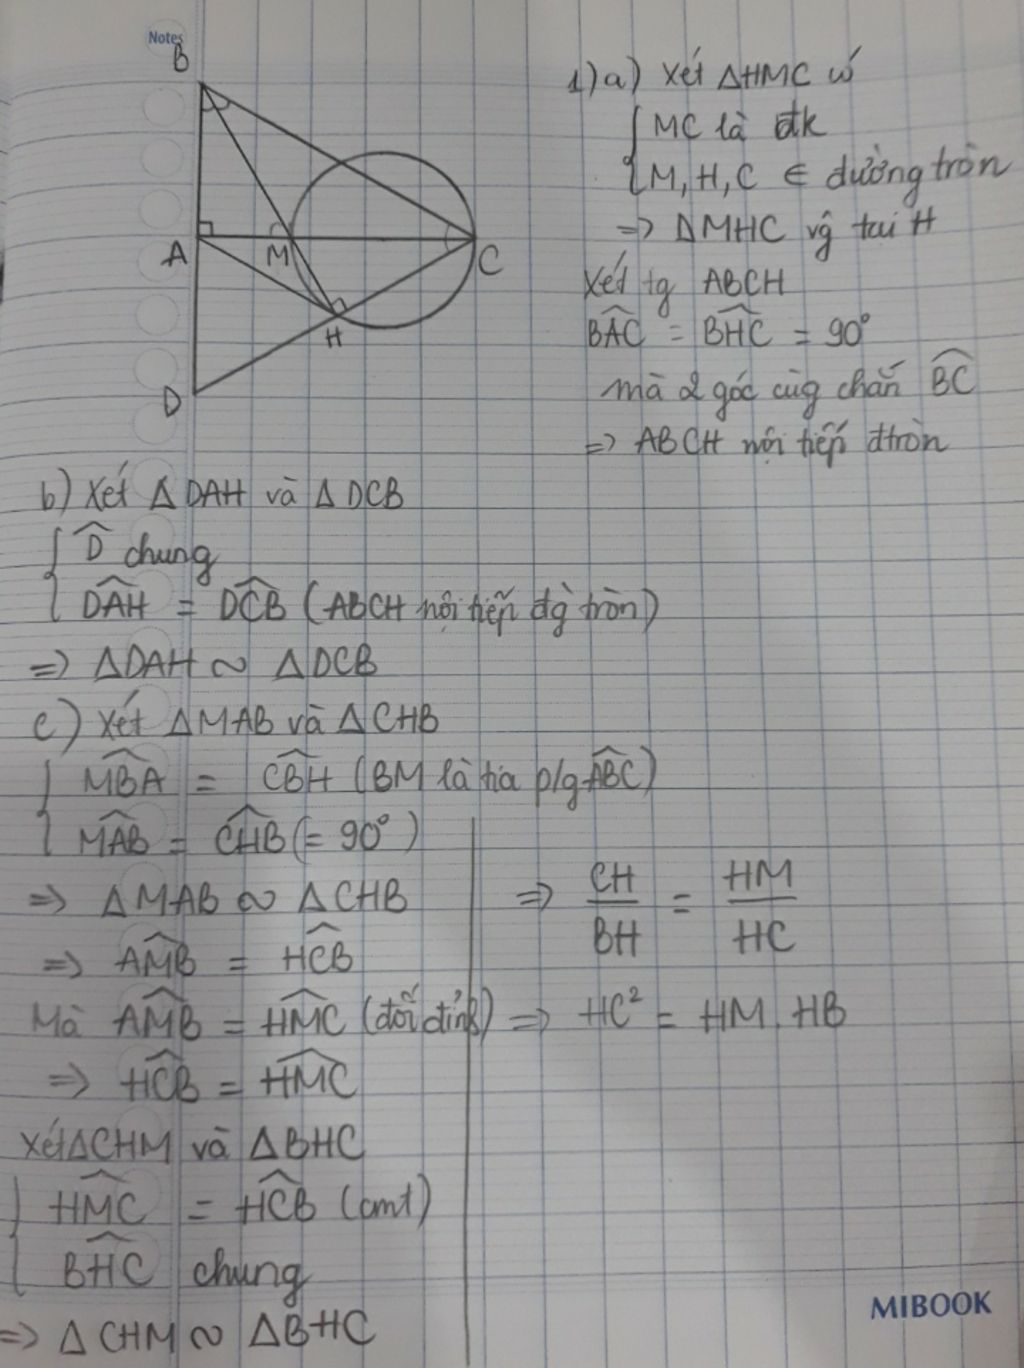 Notes
B
A
M
C
H
D
1) a) Xét ΔHMC có
MC là đk
M, H, C ∈ đường tròn
=> ΔMHC vg tại H
Xét tg ABCH
BAC = BHC = 90°
mà 2 góc cùg chắn BC
=> ABCH nội tiếp đtròn
b) Xét ΔDAH và ΔDCB
D chung
DAH = DCB (ABCH nội tiếp đg tròn)
=> ΔDAH ∽ ΔDCB
c) Xét ΔMAB và ΔCHB
MBA = CBH (BM là tia p/g ABC)
MAB = CHB (= 90°)
=> ΔMAB ∽ ΔCHB
=> AMB = HCB
Mà AMB = HMC (đối đỉnh)
=> HCB = HMC
Xét ΔCHM và ΔBHC
HMC = HCB (cmt)
BHC chung
=> ΔCHM ∽ ΔBHC
=> CH/BH = HM/HC
=> HC² = HM . HB
MIBOOK